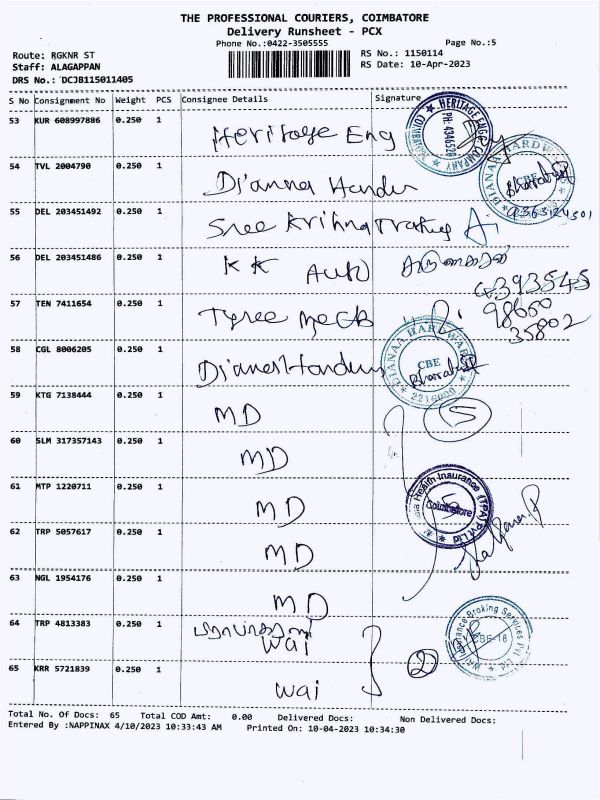 THE PROFESSIONAL COURIERS, COIMBATORE
Delivery Runsheet - PCX
Phone No.:0422-3505555 Page No.:5
Route: RGKNR ST RS No.: 1150114
Staff: ALAGAPPAN RS Date: 10-Apr-2023
DRS No.: DCJB115011405
S No Consignment No Weight PCS Consignee Details Signature
53 KUR 608997886 0.250 1 Heritage Eng
HERITAGE ENGG COMPANY
COIMBATORE
54 TVL 2004790 0.250 1 Dianna Hardw
DIANAA HARDWARE
CBE
55 DEL 203451492 0.250 1 Sree Krihna
56 DEL 203451486 0.250 1 KK Auto
98660
35802
57 TEN 7411654 0.250 1
58 CGL 8006205 0.250 1
DIANAA HARDWARE
CBE
2216000
59 KTG 7138444 0.250 1 MD 5
60 SLM 317357143 0.250 1 MD
61 MTP 1220711 0.250 1 MD
Health Insurance (TPA) Pvt Ltd
Coimbatore
62 TRP 5057617 0.250 1 MD
63 NGL 1954176 0.250 1 MD
64 TRP 4813383 0.250 1 Wai 2
Insurance Broking Services Pvt Ltd
CBE-18
65 KRR 5721839 0.250 1 Wai
Total No. Of Docs: 65 Total COD Amt: 0.00 Delivered Docs: Non Delivered Docs:
Entered By :NAPPINAX 4/10/2023 10:33:43 AM Printed On: 10-04-2023 10:34:30